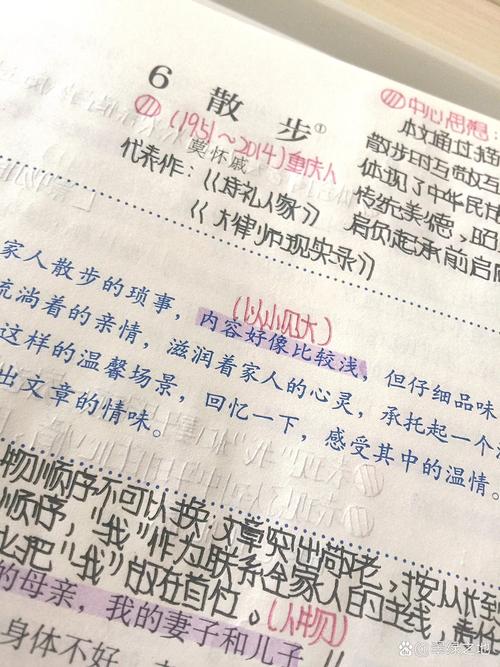 6 散步①
(1951~2014)重庆人
莫怀戚
代表作：《诗礼人家》
《大律师现实录》
中心思想
本文通过
散步时
体现了中华民
传统美德，
肩负起承前启
家人散步的琐事，内容好像比较浅，但仔细品味
(以小见大)
流淌着的亲情，滋润着家人的心灵，承托起一个
这样的温馨场景，回忆一下，感受其中的温情。
出文章的情味。
物顺序不可以换，文章突出敬老，按从长到
顺序，"我"作为联系全家人的主线，
把"我"放在首位。(人物)
的母亲，我的妻子和儿子
身体不好